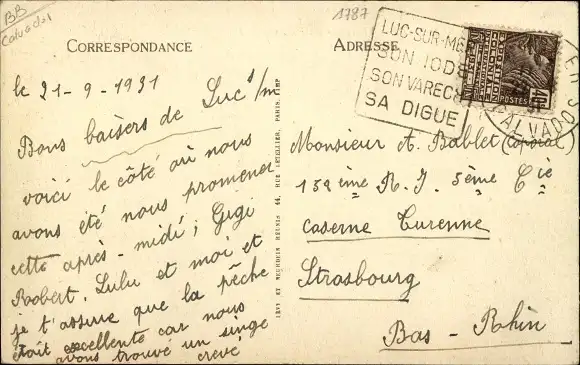 BB
Calvados
1787
CORRESPONDANCE
ADRESSE
LUC-SUR-MER
SON IODE
SON VARECH
SA DIGUE
POSTES
CALVADOS
le 21-9-1931
Bons baisers de Luc s/m
voici le côté où nous
avons été nous promener
cette après-midi; Gigi
Robert, Lulu et moi et
je t'assure que la pêche
était excellente car nous
avons trouvé un singe
crevé
LEVY ET NEURDEIN REUNIS 44, RUE LETELLIER, PARIS. IMP
Monsieur A. Bablet (Caporal)
152ème R. I. 5ème Cie
Caserne Turenne
Strasbourg
Bas-Rhin